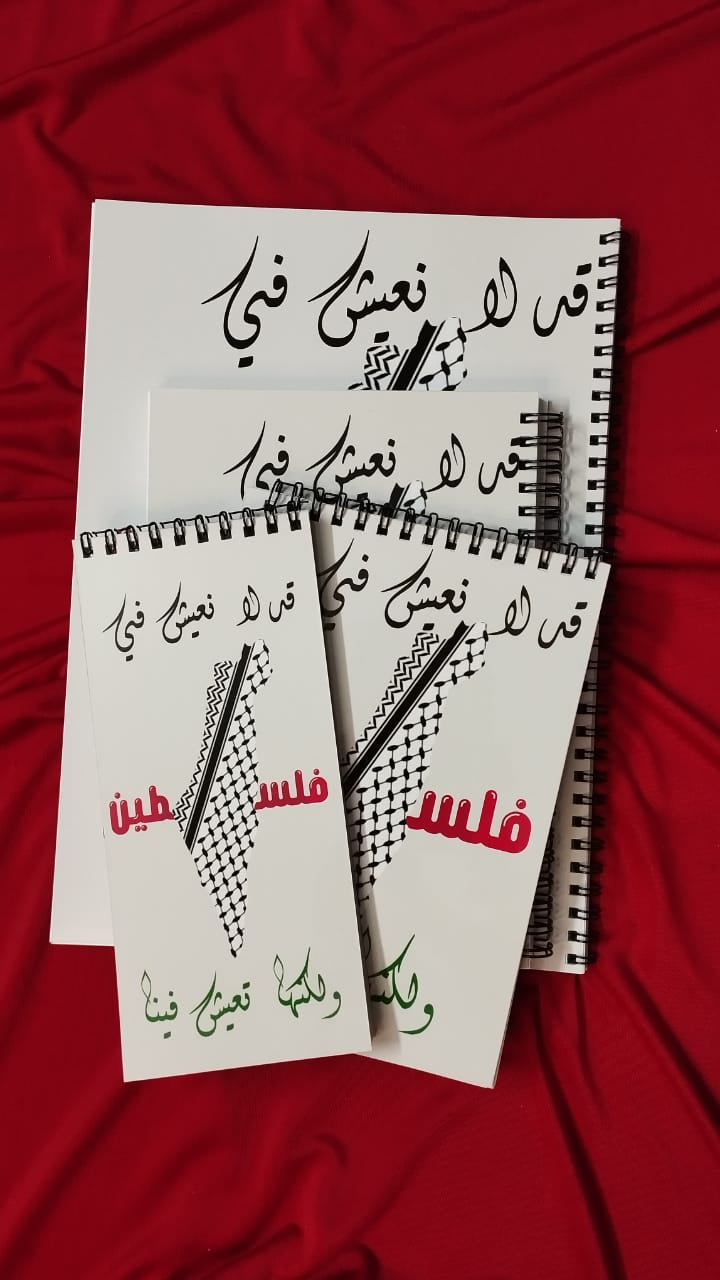 قد لا نعيش في
قد لا نعيش في
قد لا نعيش في
فلسطين
ولكنها تعيش فينا
قد لا نعيش في
فلس
ولكنها